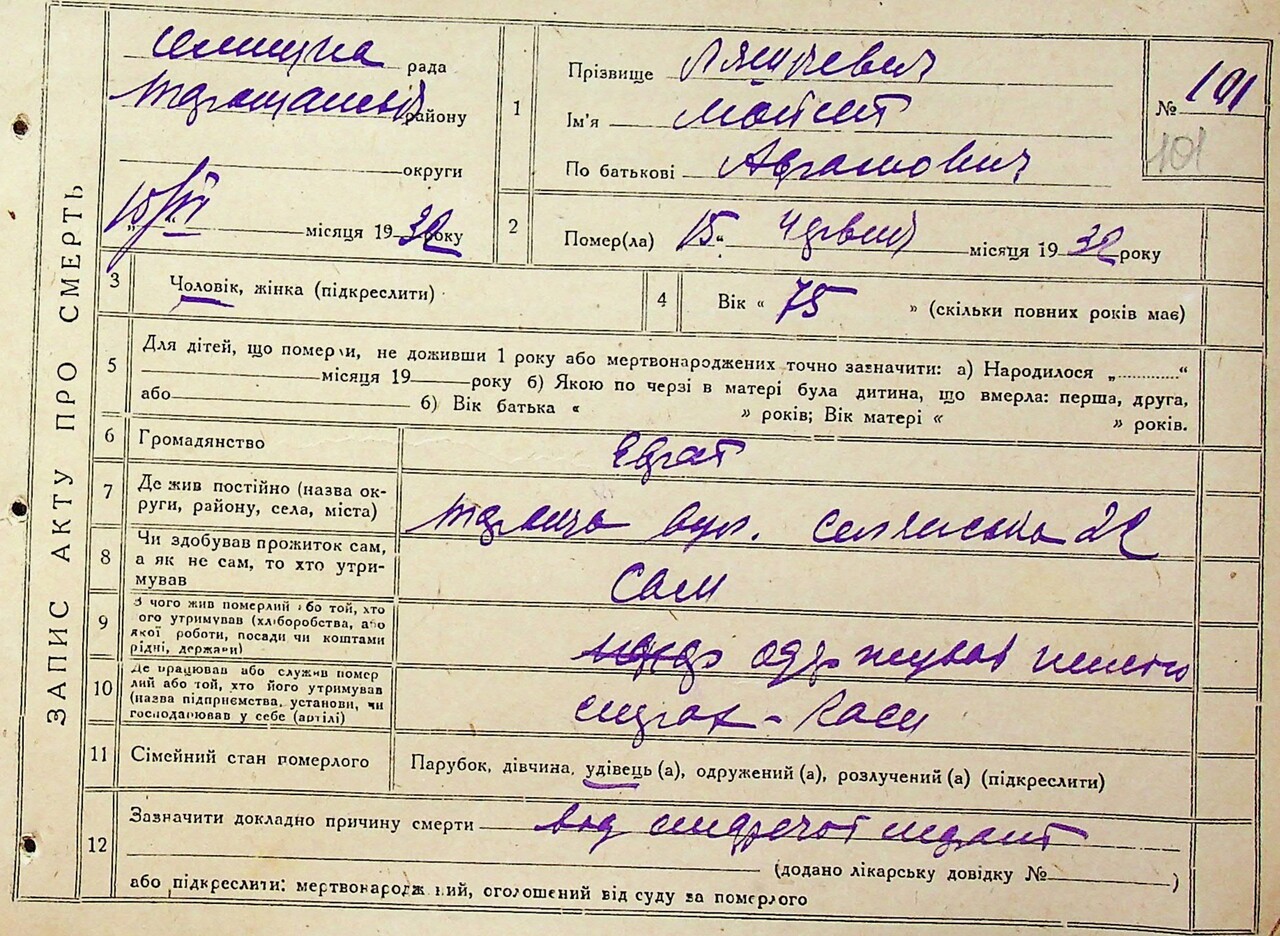 ЗАПИС АКТУ ПРО СМЕРТЬ
селищна рада
району
округи
15/VI місяця 1932 року
1
Прізвище
Ім'я Мойсей
По батькові Абрамович
№ 101
101
2
Помер(ла) „15“ Червня місяця 1932 року
3
Чоловік, жінка (підкреслити)
4
Вік « 75 » (скільки повних років має)
5
Для дітей, що померли, не доживши 1 року або мертвонароджених точно зазначити: а) Народилося „............“
місяця 19 року б) Якою по черзі в матері була дитина, що вмерла: перша, друга,
або б) Вік батька « » років; Вік матері « » років.
6
Громадянство
7
Де жив постійно (назва ок-
руги, району, села, міста)
вул. Селянська
8
Чи здобував прожиток сам,
а як не сам, то хто утри-
мував
Сам
9
З чого жив померлий або той, хто
його утримував (хліборобства, або
якої роботи, посади чи коштами
рідні, держави)
одержував
10
Де працював або служив помер
лий або той, хто його утримував
(назва підприємства, установи, чи
господарював у себе (артілі)
каси
11
Сімейний стан померлого
Парубок, дівчина, удівець (а), одружений (а), розлучений (а) (підкреслити)
12
Зазначити докладно причину смерти від
(додано лікарську довідку № )
або підкреслити: мертвонароджений, оголошений від суду за померлого